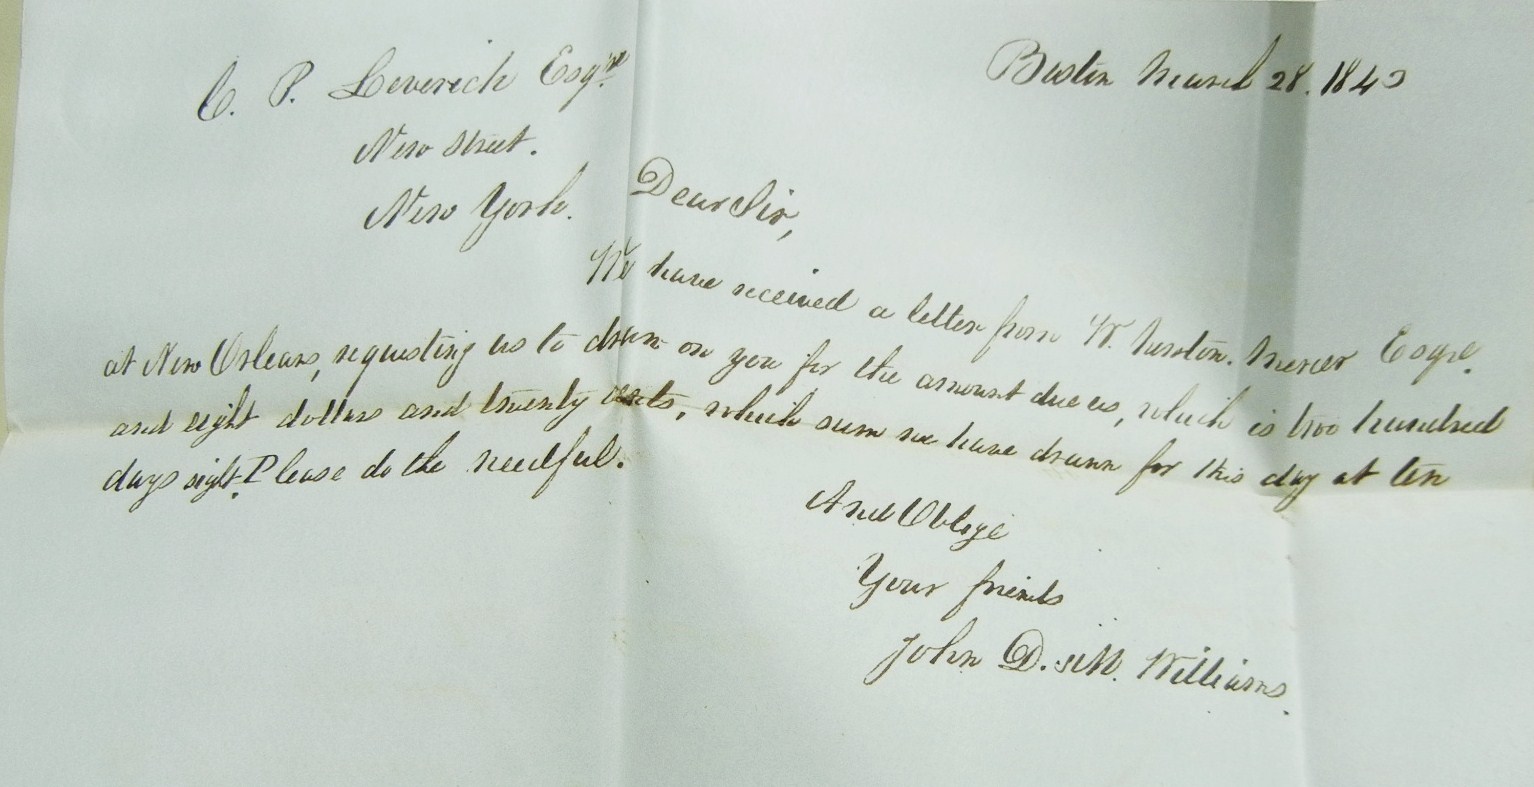 Boston March 28. 1843
C. P. Leverich Esqre.
New Street.
New York.
Dear Sir,
We have received a letter from W. Newton. Mercer Esqre.
at New Orleans, requesting us to draw on you for the amount due us, which is two hundred
and eight dollars and twenty cents, which sum we have drawn for this day at ten
days sight. Please do the needful.
And Oblige
Your friends
John D. & M. Williams.